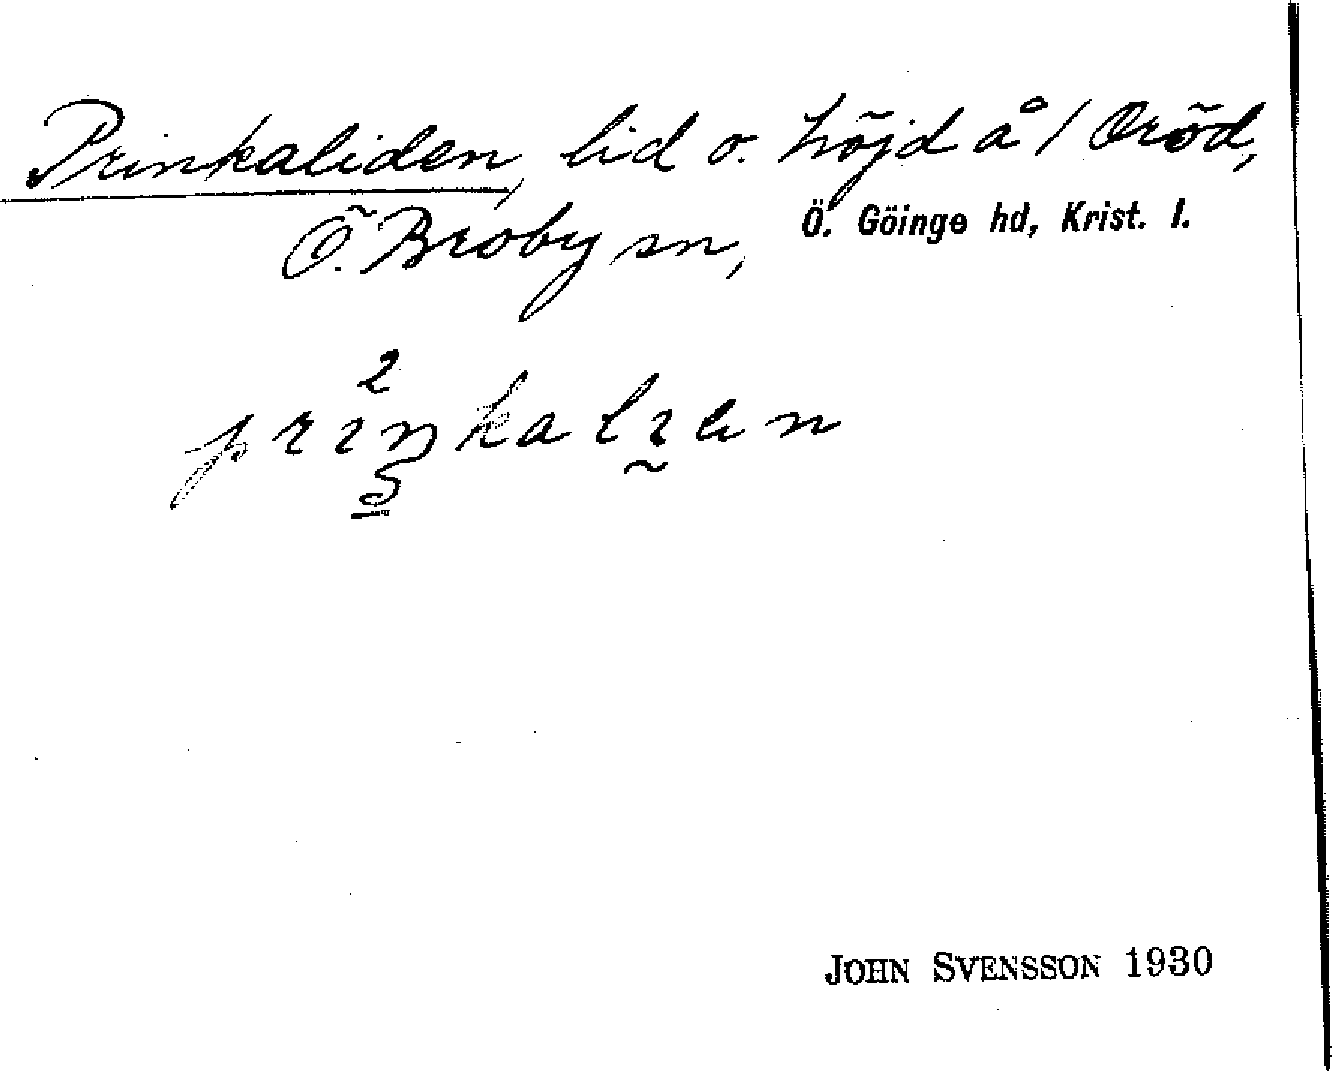 Prinkaliden, lid o. höjd å 1 Oröd,
Ö. Broby sn, Ö. Göinge hd, Krist. l.
JOHN SVENSSON 1930